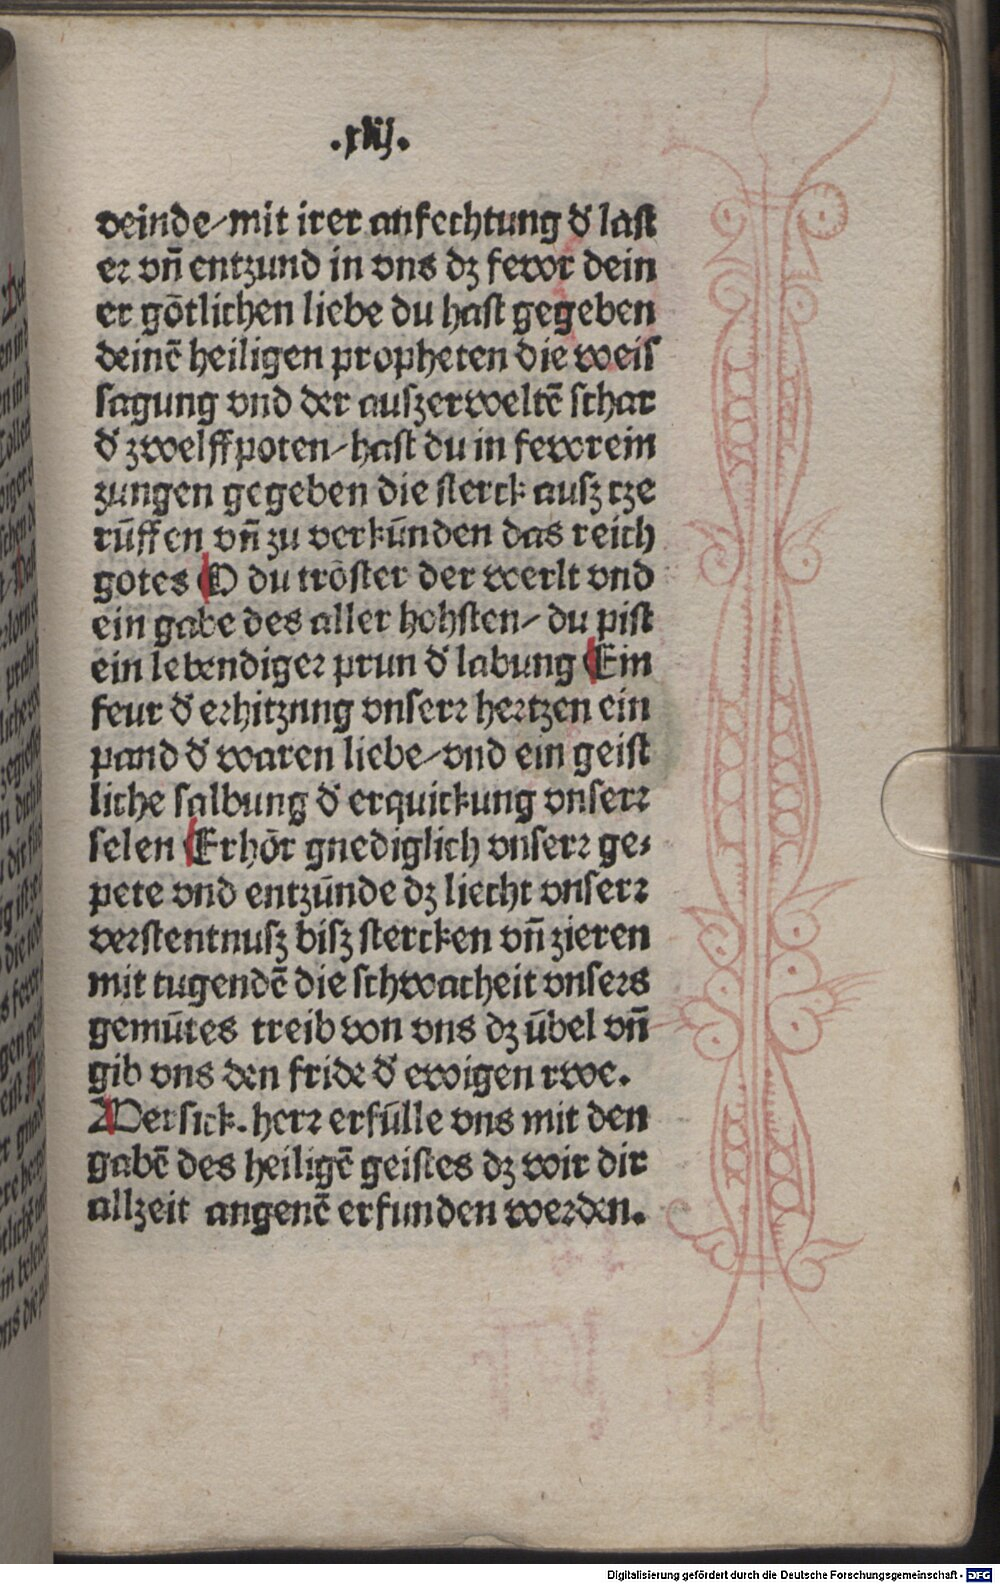 .xliij.
veinde/mit irer anfechtung d' laſt
er vn̄ entzund in vns dz fewr dein
er gȯtlichen liebe du haſt gegeben
deinē heiligen propheten die weiſ
ſagung vnd der auſzerweltē ſchar
d' zwelffpoten/haſt du in fewrein
zungen gegeben die ſterck auſz cze
růffen vn̄ zu verkůnden das reich
gotes O du trȯſter der werlt vnd
ein gabe des aller hohſten/ du piſt
ein lebendiger prun d' labung Ein
feur d' erhitzung vnſerr hertzen ein
pand d' waren liebe/vnd ein geiſt
liche ſalbung d' erquickung vnſerr
ſelen Erhȯr gnediglich vnſerr ge⸗
pete vnd entzůnde dz liecht vnſerr
verſtentnuſz biſz ſtercken vn̄ zieren
mit tugendē die ſchwacheit vnſers
gemůtes treib von vns dz ůbel vn̄
gib vns den fride d' ewigen rwe.
Verſick. herr erfůlle vns mit den
gabē des heiligē geiſtes dz wir dir
allzeit angenē erfunden werden.
Digitalisierung gefördert durch die Deutsche Forschungsgemeinschaft - DFG